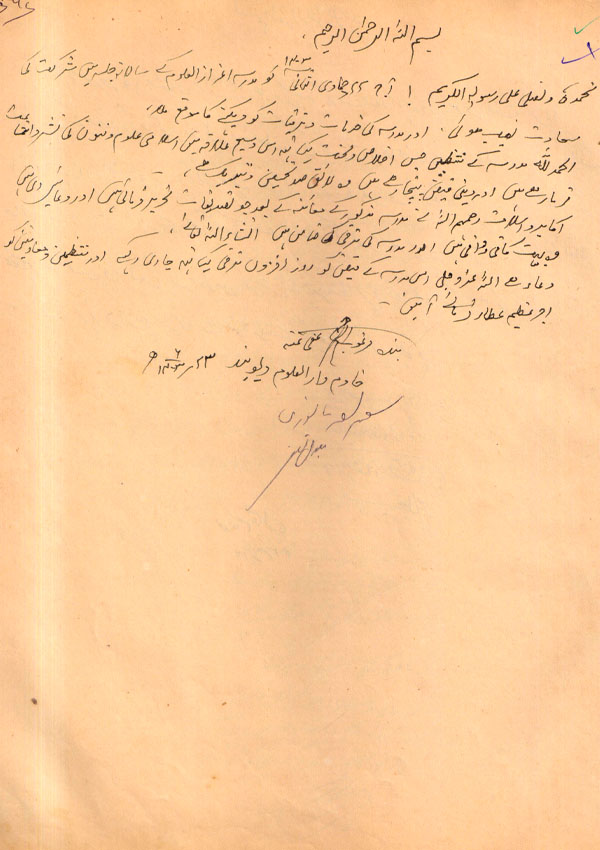 بسم اللہ الرحمٰن الرحیم۔
نحمدہ و نصلی علی رسولہ الکریم! آج ۲۲ جمادی الثانی ۱۴۰۳ کو مدرسہ اعزاز العلوم کے سالانہ جلسہ میں شرکت کی
سعادت نصیب ہوئی۔ اور مدرسہ کی خدمات و ترقیات کو دیکھنے کا موقع ملا۔
الحمد للہ مدرسہ کے منتظمین جس اخلاص و محنت کے ساتھ اس وسیع علاقہ میں اسلامی علوم و فنون کی نشر و اشاعت
فرما رہے ہیں اور دینی فیض پہنچا رہے ہیں وہ لائق صد تحسین و تبریک ہے۔
اکابر و اسلاف رحمہم اللہ نے مدرسہ مذکور کے معائنہ کے بعد جو تصدیقات تحریر فرمائی ہیں اور دعائیں دی ہیں
وہ بہت کافی وافی ہیں اور مدرسہ کی ترقی کی ضامن ہیں انشاء اللہ تعالیٰ۔
دعاء ہے اللہ عز و جل اس مدرسہ کے فیض کو روز افزوں ترقی کے ساتھ جاری رکھے اور منتظمین و معاونین کو
اجر عظیم عطا فرمائے آمین۔
بندہ عفی عنہ
خادم دار العلوم دیوبند ۲۳
سعید پالنپوری